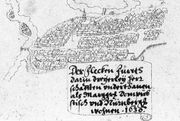 Der Flecken Fürth
darin dreyerley Herr
schafften underthanen
als Marggr. Dompröb
stisch und Nürnbergk
wohnen . 1630.